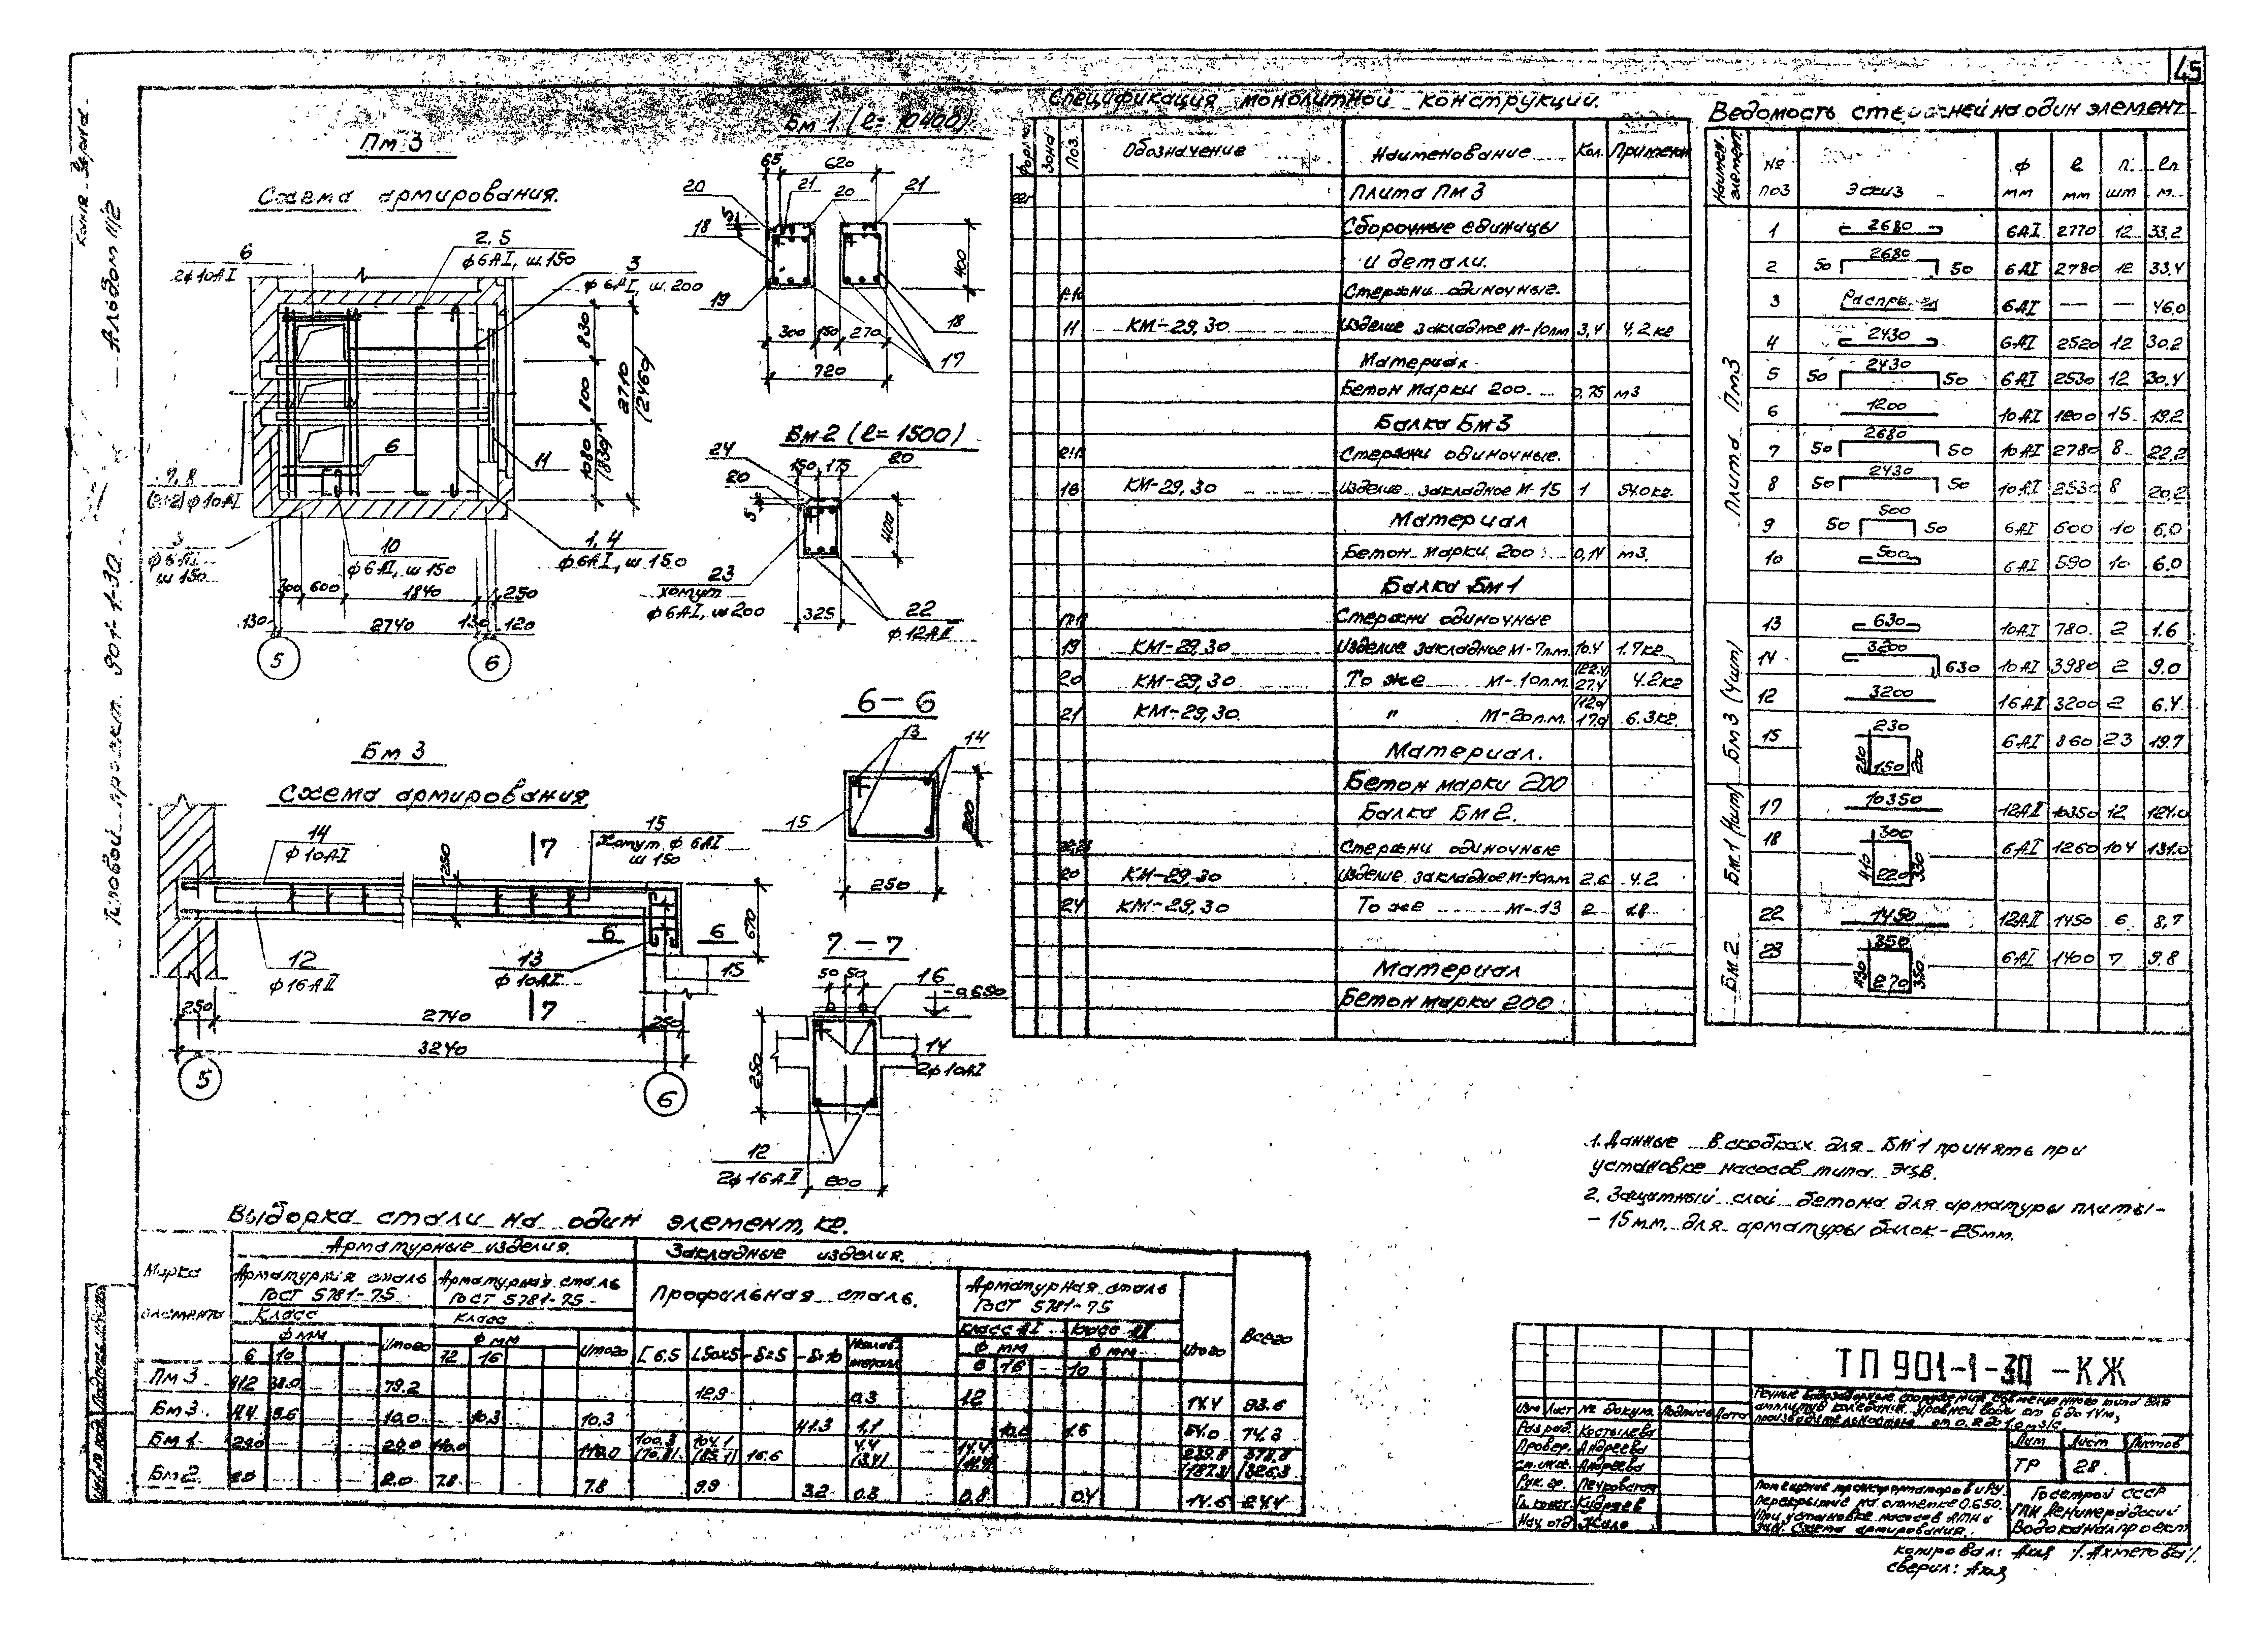 45
Альбом III/2
Типовой проект 901-1-30
Пм 3
Схема армирования.
6
2ф10АI
2,5
ф6АI, ш.150
3
ф6АI, ш.200
830
800
1080
(830)
2710
(2460)
11
6
7,8
(2+2)ф10АI
3
ф6АI
ш150
10
ф6АI, ш150
1,4
ф6АI, ш150
300
600
1840
250
130
2740
130
120
5
6
Бм 1 (ℓ=10400)
65
620
20
21
20
21
18
5
19
400
18
17
300
150
270
720
Бм 2 (ℓ=1500)
24
150
175
20
20
5
400
23
хомут
ф6АI, ш200
325
22
ф12АII
6-6
13
14
15
200
250
Бм 3
Схема армирования
14
ф10АI
7
15
Хомут ф6АI
ш150
250
670
12
ф16АII
13
ф10АI
6
6
15
7
250
2740
250
3240
5
6
7-7
50
50
16
-0.650
14
2ф10АI
250
12
2ф16АII
200
Спецификация монолитной конструкции.
Зона
Поз.
Обозначение
Наименование
Кол.
Примечан
Плита Пм 3
Сборочные единицы
и детали.
Стержни одиночные.
11 КМ-29,30 Изделие закладное М-10п.м 3,4 4.2кг
Материал
Бетон марки 200 0,75 м3
Балка Бм3
Стержни одиночные.
16 КМ-29,30 Изделие закладное М-15 1 54.0кг.
Материал
Бетон марки 200 0,14 м3.
Балка Бм1
Стержни одиночные
19 КМ-29,30 Изделие закладное М-7п.м. 10.4 1.7кг
20 КМ-29,30 То же М-10п.м. (22.4) 27.4 4.2кг
21 КМ-29,30 " М-20п.м. (12.0) 17.0 6.3кг.
Материал.
Бетон марки 200
Балка Бм2.
Стержни одиночные
20 КМ-29,30 Изделие закладное М-10п.м 2.6 4.2
24 КМ-29,30 То же М-13 2 1.8
Материал
Бетон марки 200
Ведомость стержней на один элемент
Наимен. элемент.
№ поз
Эскиз
ф мм
ℓ мм
п. шт
ℓп м.
Плита Пм3
1 2680 6АI 2770 12 33,2
2 50 2680 50 6АI 2780 12 33,4
3 6АI — — 46.0
4 2430 6АI 2520 12 30.2
5 50 2430 50 6АI 2530 12 30.4
6 1200 10АI 1200 15 19.2
7 50 2680 50 10АI 2780 8 22.2
8 50 2430 50 10АI 2530 8 20,2
9 50 500 50 6АI 600 10 6.0
10 500 6АI 590 10 6.0
Бм 3 (4шт)
13 630 10АI 780 2 1.6
14 3200 630 10АI 3980 2 9.0
12 3200 16АII 3200 2 6.4
15 230 280 150 200 6АI 860 23 19.7
Бм.1
17 10350 12АII 10350 12 124.0
18 300 410 220 330 6АI 1260 104 131.0
Бм.2
22 1450 12АII 1450 6 8,7
23 350 430 270 350 6АI 1400 7 9,8
1. Данные в скобках для БМ1 принять при
установке насосов типа ЭЦВ.
2. Защитный слой бетона для арматуры плиты-
- 15мм. для арматуры балок-25мм.
Выборка стали на один элемент, кг.
Марка элемента
Арматурные изделия.
Закладные изделия.
Арматурная сталь ГОСТ 5781-75
Арматурная сталь ГОСТ 5781-75
Профильная сталь.
Арматурная сталь ГОСТ 5781-75
Класс
Класс
класс АI
класс АII
Всего
ф мм
Итого
ф мм
Итого
[ 6,5
L50х5
-δ=5
-δ=10
Наплав. металл
ф мм
ф мм
Итого
6 10 12 16 6 16 10
Пм 3 41.2 38.0 79.2 12.9 0.3 1.2 14.4 93.6
Бм 3 4.4 5.6 10.0 10.3 10.3 41.3 1,1 10.0 1.6 54.0 74.3
Бм 1 29.0 29.0 110.0 110.0 100.3 104.1 16.6 4.4 14.4 239.8 378.8
Бм 2 2.0 2.0 7.8 7.8 9.9 3.2 0.3 0.8 0.4 14.6 24.4
ТП 901-1-30 -КЖ
Речные водозаборные сооружения совмещенного типа для
амплитуд колебания уровней воды от 6 до 14м,
производительностью от 0,2 до 1.0 м3/с
Изм Лист № докум. Подпись Дата
Разраб. Костылева
Провер. Андреева
Ст.инж. Андреева
Рук. гр. Печковская
Гл. конст. Кидряев
Нач отд Жало
Лит Лист Листов
ТР 28
Помещение трансформаторов и РУ.
Перекрытие на отметке 0.650.
При установке насосов АТН и
ЭЦВ. Схема армирования.
Госстрой СССР
ГПИ Ленинградский
Водоканалпроект
копировал: /Ахметова/
сверил: